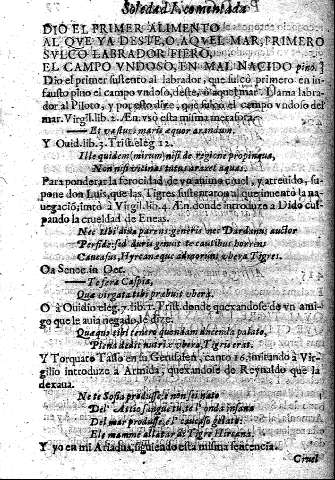 Soledad I. comentada
DIÒ EL PRIMER ALIMENTO
AL QVE YA DESTE, O AQVEL MAR, PRIMERO
SVLCÒ LABRADOR FIERO,
EL CAMPO VNDOSO, EN MAL NACIDO pino.
Dio el primer sustento al labrador, que sulcò primero en in-
fausto pino el campo vndoso, deste, ò aquel mar. Llama labra-
dor al Piloto, y por esto dize, que sulcò el campo vndoso del
mar. Virgil. lib. 2. Æn. vsò esta misma metafora.
— Et vastum maris æquor arandum.
Y Ouid. lib. 3. Trist. eleg. 12.
Ille quidem (mirum) nisi de regione propinqua,
Non nisi vicinas tutus ararit aquas.
Para ponderar la ferocidad de vn animo cruel, y atreuido, su-
pone don Luis, que las Tigres sustentaron al que inuentò la na-
uegaciò; imitò à Virgil. lib. 4. Æn. donde introduze a Dido cul-
pando la crueldad de Eneas.
Nec tibi diua parens: generis nec Dardanus auctor
Perfide: sed duris genuit te cautibus horrens
Caucasus, Hyrcanæque admorunt vbera Tigres.
O a Senec. in Oct.
— Te fera Caspia,
Quæ virgata tibi præbuit vbera.
O à Ouidio eleg. 7. lib. 1. Trist. donde quexandose de vn ami-
go que le auia negado, le dize:
Quæque tibi tenero quondam ducenda palato,
Plena dedit nutrix vbera, Tigris erat.
Y Torquato Tasso en su Gerusalen, canto 16. imitando à Vir-
gilio introduze a Armida, quexandose de Reynaldo que la
dexaua.
Ne te Sofia produsse, e non sei nato
Del' Attio sangue tu, te l' onda insana
Del mar produsse, e'l caucaso gelato:
E le mamme allattar di Tigre Hircana.
Y yo en mi Ariadna, siguiendo esta misma sentencia.
Cruel